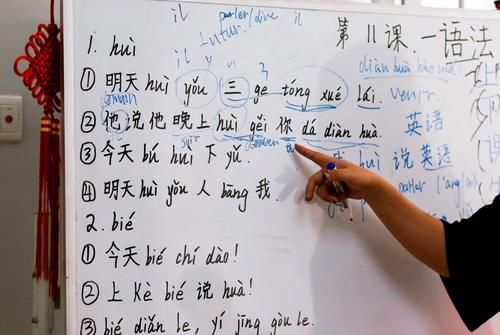 il parler/dire. il
futur.
第 11 课. 一 语法
1. huì
il y
diàn huà hào mǎ
① 明天 huì yǒu 三 ge tóng xué lái.
venir.
demain
② 他 说 他 晚上 huì gěi 你 dá diàn huà.
英语
soir
③ 今天 bú huì 下 yǔ.
huì 说 英语
parler l'anglais
④ 明天 huì yǒu 人 bāng 我.
2. bié
① 今天 bié chí dào!
② 上 kè bié 说 huà!
③ bié diǎn le, yǐ jīng gòu le.